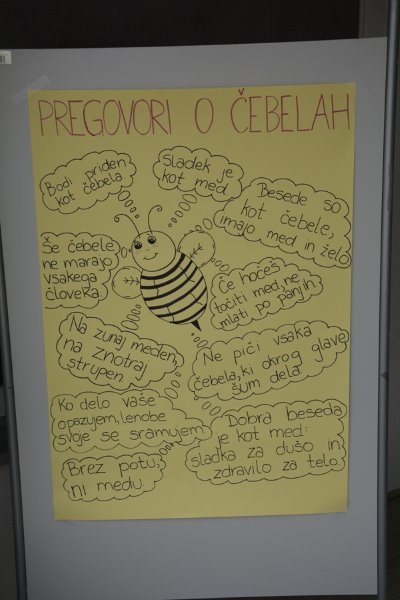 PREGOVORI O ČEBELAH
Bodi priden
kot čebela.
Sladek je
kot med.
Besede so
kot čebele,
imajo med in želo.
Še čebele
ne marajo
vsakega
človeka.
Če hočeš
točiti med, ne
mlati po panjih.
Na zunaj meden,
na znotraj
strupen.
Ne piči vsaka
čebela, ki okrog glave
šum dela.
Ko delo vaše
opazujem, lenobe
svoje se sramujem.
Dobra beseda
je kot med:
sladka za dušo in
zdravilo za telo.
Brez potu,
ni medu.